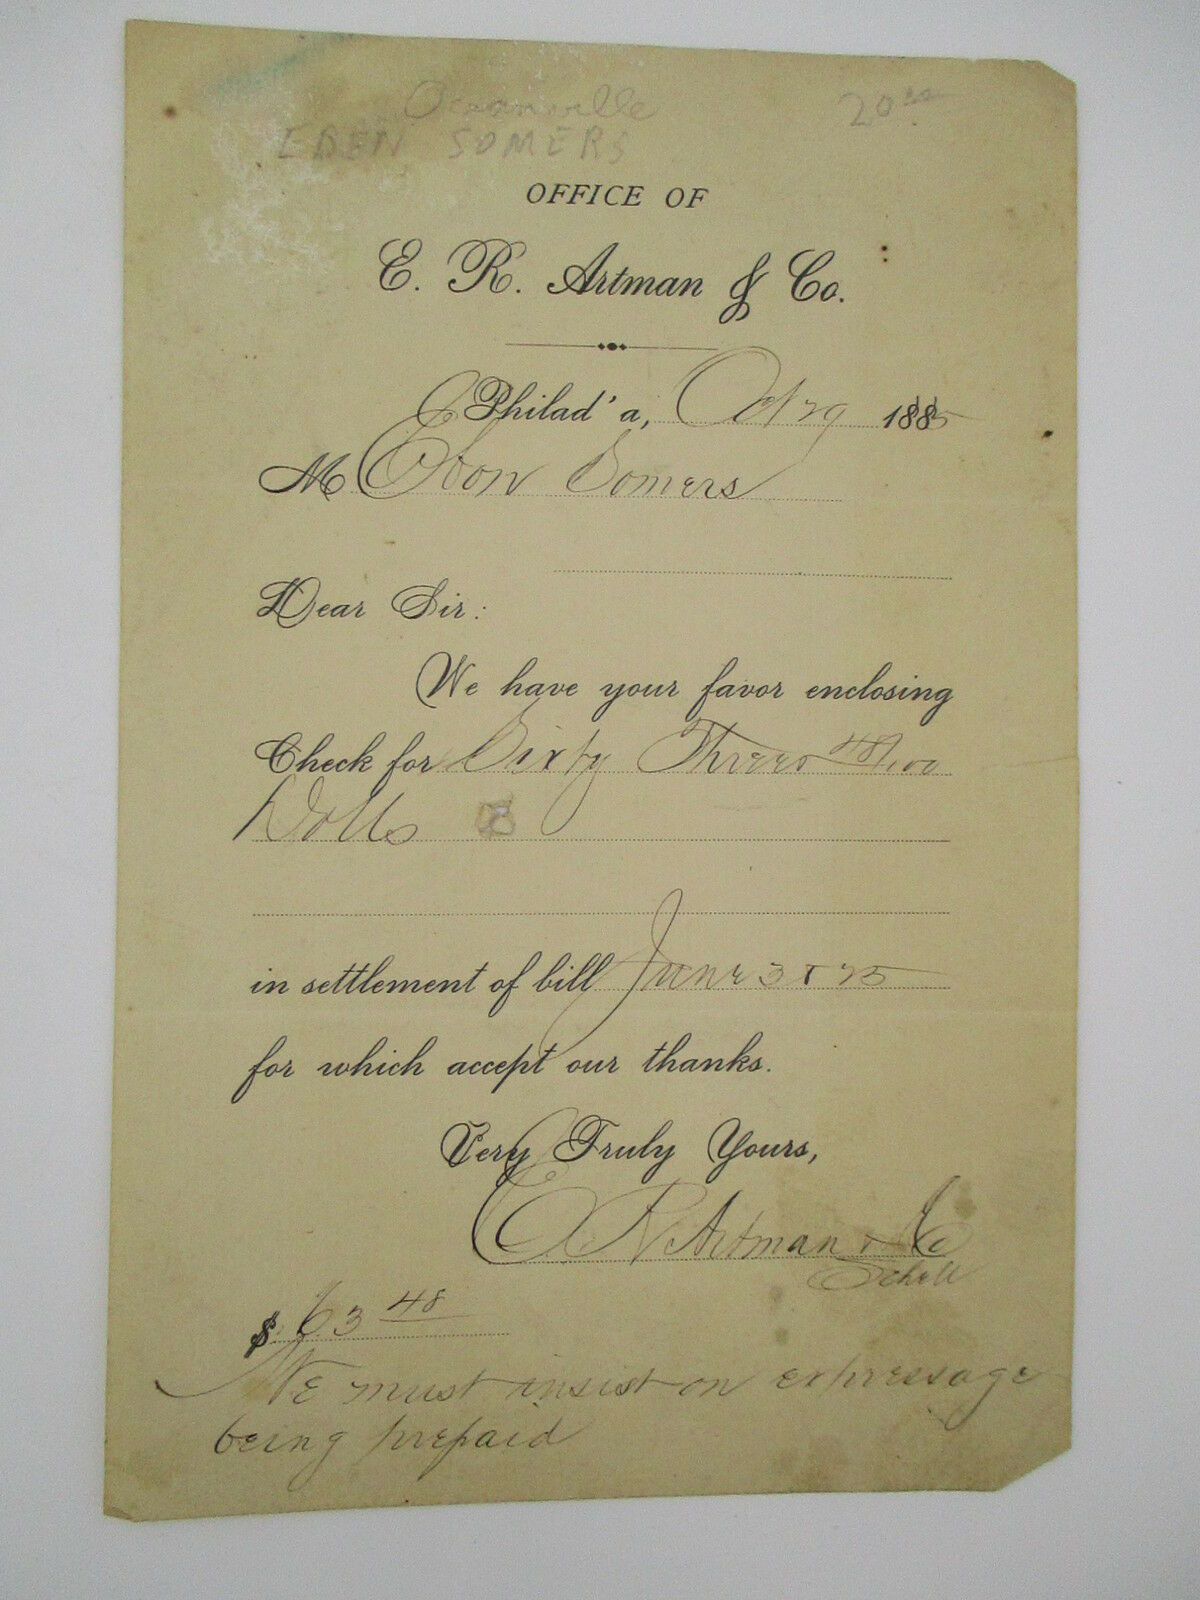 Oceanville 20
EBEN SOMERS
OFFICE OF
E. R. Artman & Co.
Philad'a, Oct 29 1885
M Eben Somers
Dear Sir:
We have your favor enclosing
Check for Sixty Three 48/100
Dolls
in settlement of bill June 3 & 25
for which accept our thanks.
Very Truly Yours,
E R Artman & Co
Schell
$ 63 48
We must insist on expressage
being prepaid